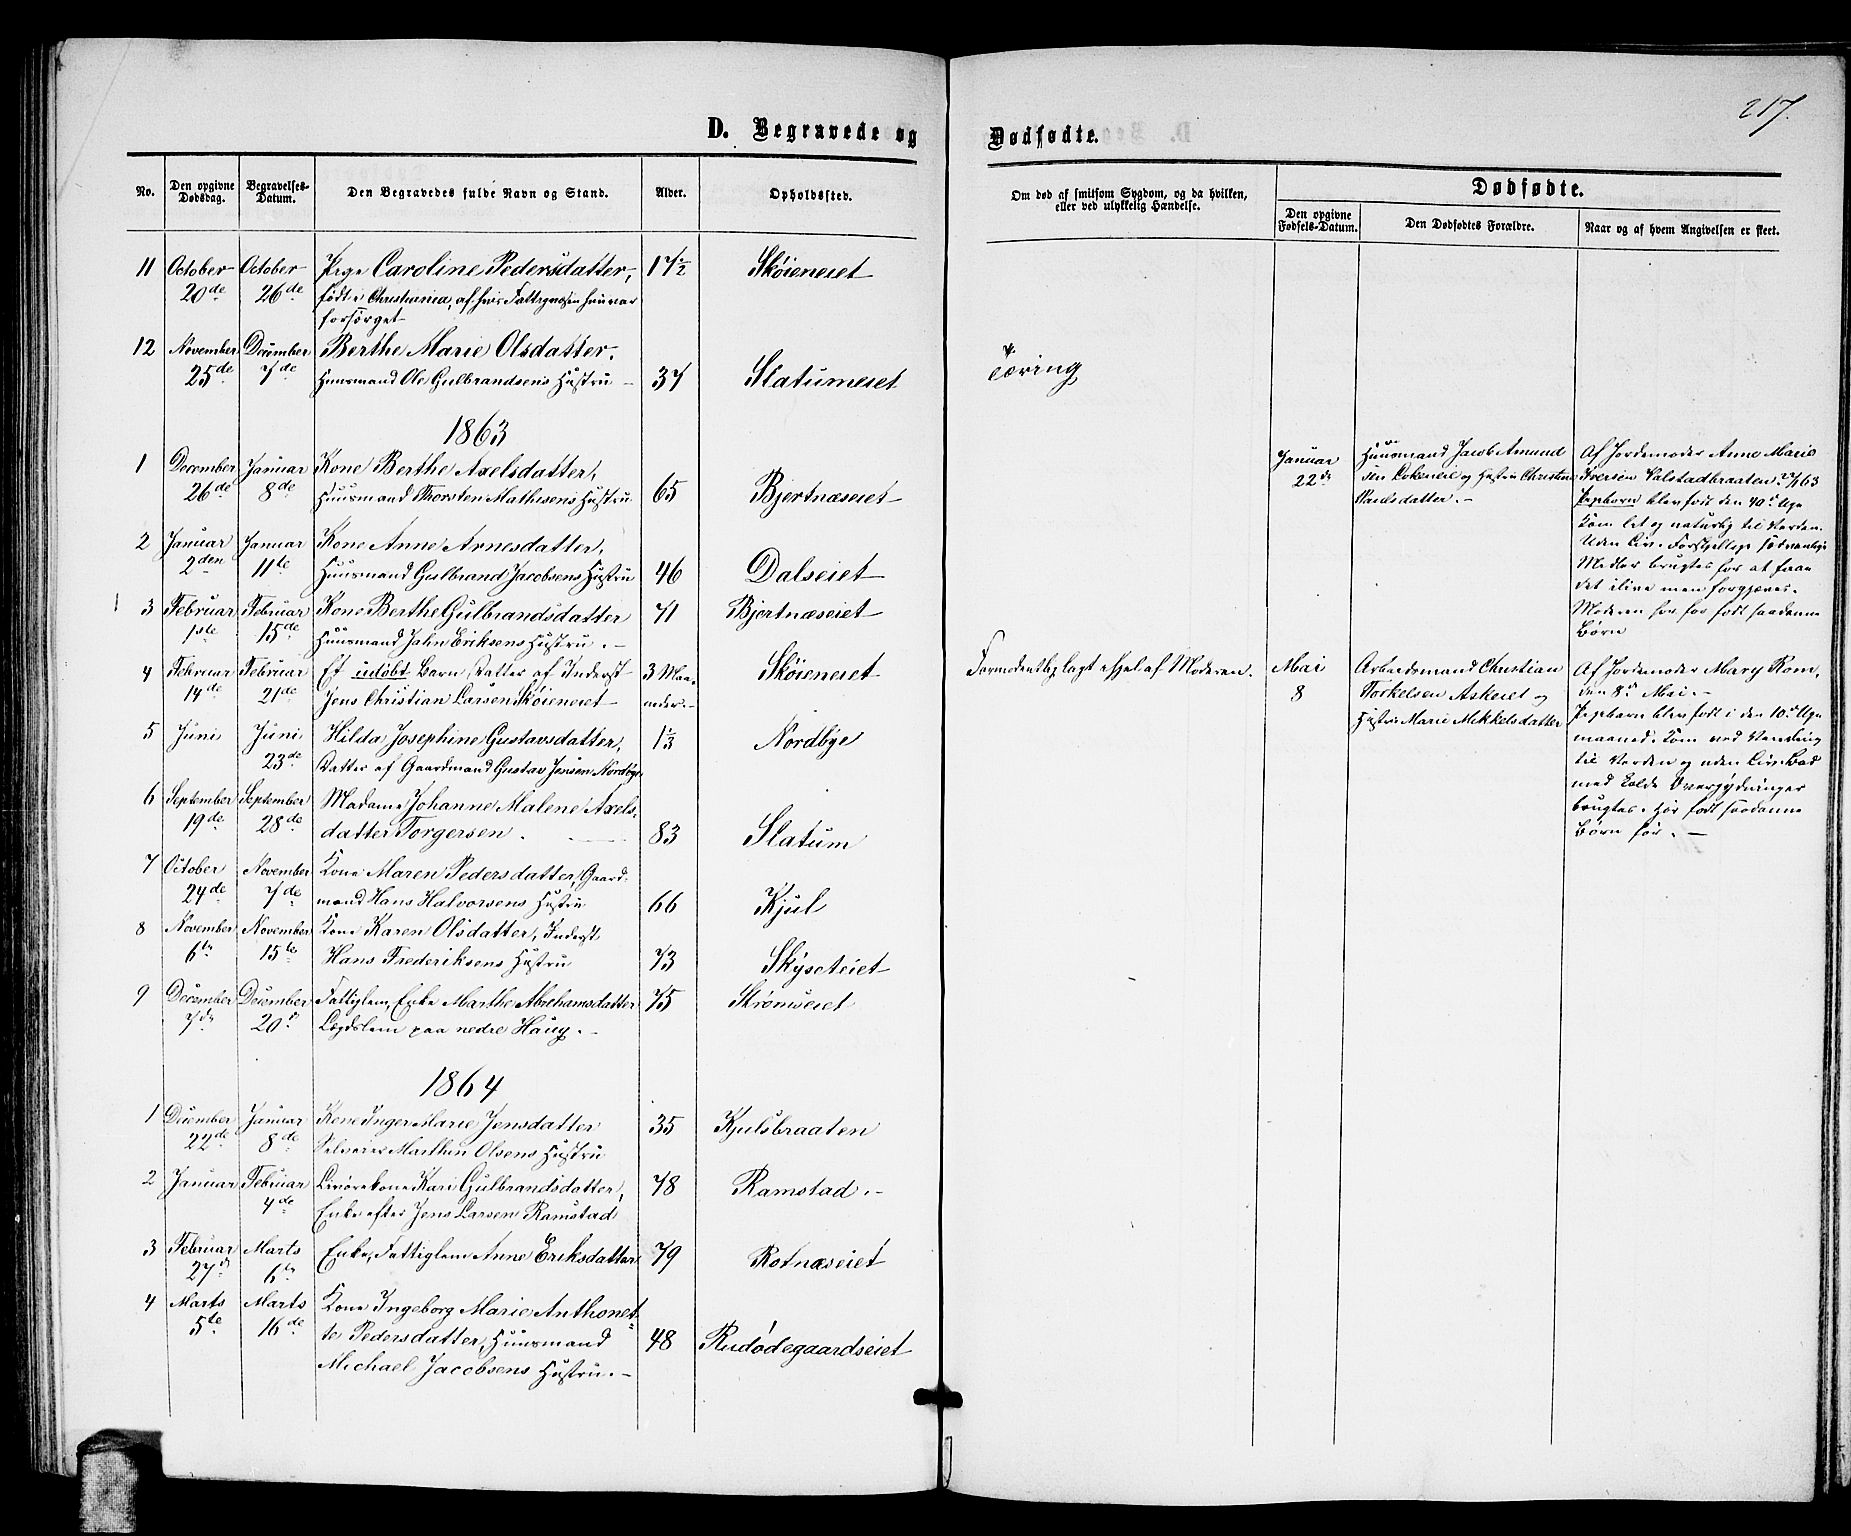 217.
D. Begravede og Dødfødte.
No.
Den opgivne Dødsdag.
Begravelses-Datum.
Den Begravedes fulde Navn og Stand.
Alder.
Opholdssted.
Om død af smitsom Sygdom, og da hvilken,
eller ved ulykkelig Hændelse.
Dødfødte.
Den opgivne Fødsels-Datum.
Den Dødfødtes Forældre.
Naar og af hvem Angivelsen er skeet.
11 October October Pige Caroline Pedersdatter, 17½ Skøieneiet
20de 26de født i Christiania, af hvis Fattigvæsen hun var
forsørget
12 November December Berthe Marie Olsdatter.
25de 7de Huusmand Ole Gulbrandsens Hustru 37 Slatumeiet Tæring
1863
1 December Januar Kone Berthe Axelsdatter,
26de 8de Huusmand Thorsten Mathisens Hustru 65 Bjertnæseiet
2 Januar Januar Kone Anne Arnesdatter,
2den 11te Huusmand Gulbrand Jacobsens Hustru 46 Dalseiet
3 Februar Februar Kone Berthe Gulbrandsdatter 71 Bjertnæseiet
1ste 15de Huusmand John Eriksens Hustru.
4 Februar Februar Et udøbt Barn, Datter af Inderst 3 Maa- Skøieneiet
14de 21de Jens Christian Larsen Skøieneiet neder.
Formodentlig lagt ihjel af Moderen.
5 Juni Juni Hilda Josephine Gustavsdatter, 1⅓ Nordbye
23de Datter af Gaardmand Gustav Jensen Nordbye
6 September September Madame Johanne Malene Axels-
19de 28de datter Torgersen. 83 Slatum
7 October November Kone Maren Pedersdatter, Gaard-
24de 7de mand Hans Halvorsens Hustru 66 Kjul
8 November November Kone Karen Olsdatter, Inderst
6te 15te Hans Frederiksens Hustru 73 Skyseteiet
9 December December Fattiglem, Enke Marthe Abrahamsdatter 75 Strømseiet
7de 20de Lægdslem paa nedre Haug.
1864
1 December Januar Kone Inger Marie Jensdatter 35 Kjulsbraaten
22de 8de Selveier Marthin Olsens Hustru
2 Januar Februar Livørekone Kari Gulbrandsdatter, 78 Ramstad.
4de Enke efter Jens Larsen Ramstad
3 Februar Marts Enke, Fattiglem Anne Eriksdatter 79 Rotnæseiet
27de 6te
4 Marts Marts Kone Ingeborg Marie Anthonet-
5te 16de te Pedersdatter, Huusmand 48 Rudødegaardseiet
Michael Jacobsens Hustru.
Januar
22de
Huusmand Jacob Amund
sen og Hustru Christine
Paulsdatter.
Af Jordemoder Anne Marie
Iversen Valstadbraaten
Pigebarn blev født den 40de Uge
Kom let og naturlig til Verden.
Uden Liv. Forskjellige sædvanlige
Midler brugtes for at faae
det ilive men forgjæves.
Moderen har før født saadanne
Børn
Mai
8
Arbeidsmand Christian
Torkelsen Askeiet og
Hustru Marie Mikkelsdatter
Af Jordemoder Mary Rom,
den 8de Mai.
Pigebarn blev født i den 10de Uge
maaned. Kom ved Vending
til Verden og uden Liv. Bad
med kolde Overgydninger
brugtes. Har født saadanne
Børn før.